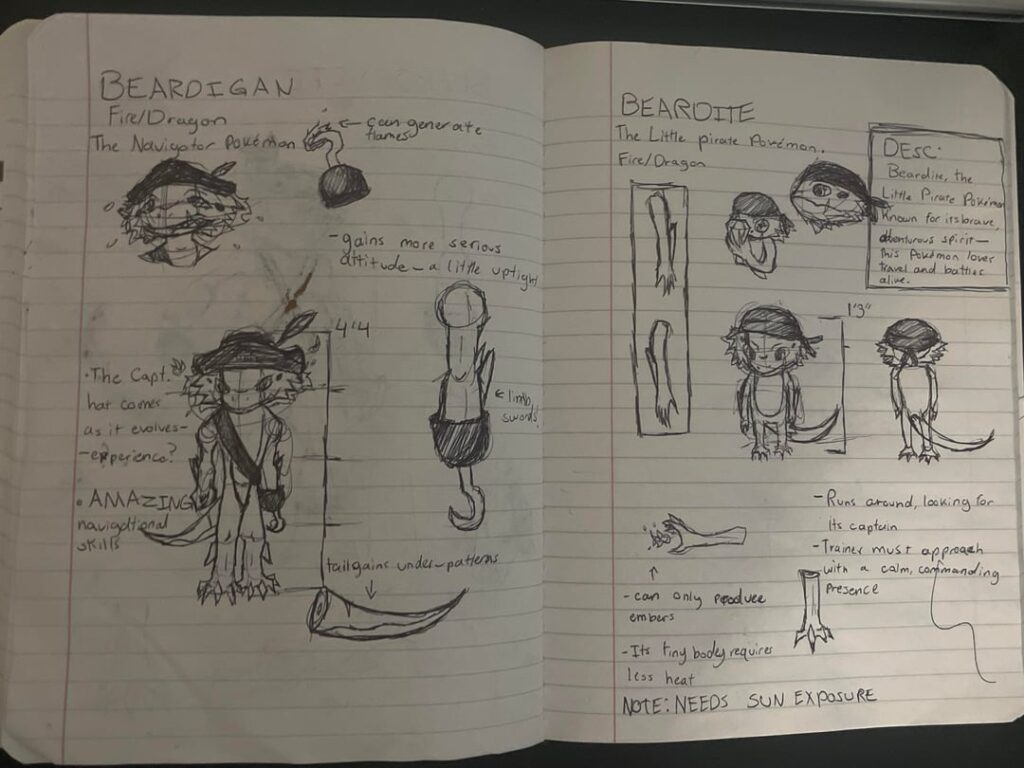 BEARDIGAN
Fire/Dragon
The Navigator Pokémon
← can generate
flames
- gains more serious
attitude - a little uptight
4'4
• The Capt.
hat comes
as it evolves -
- experience?
← limb
swords
• AMAZING
navigational
skills
tail gains under-patterns
BEARDITE
The Little pirate Pokémon.
Fire/Dragon
DESC:
Beardite, the
Little Pirate Pokémon
Known for its brave,
adventurous spirit -
this Pokémon loves
travel and battles
alive.
1'3"
- Runs around, looking for
its captain
- Trainer must approach
with a calm, commanding
presence
- can only produce
embers
- Its tiny body requires
less heat
NOTE: NEEDS SUN EXPOSURE